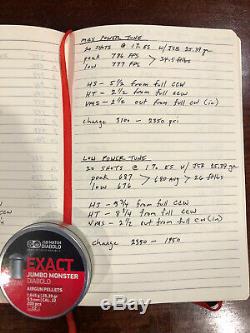 MAX POWER TUNE
20 SHOTS @ 1% ES w/ JSB 25.39 gr
peak 786 FPS
low 777 FPS > 34.5 ftlbs
HS - 5 1/2 from full CCW
HT - 2 1/2 from full CCW
VMS - 2 1/2 out from full CW (in)
charge 3100 - 2350 psi
LOW POWER TUNE
20 SHOTS @ 1% ES w/ JSB 25.39 gr
peak 687
low 676 > 680 avg > 26 ftlbs
HS - 9 3/4 from full CCW
HT - 8 1/4 from full CCW
VMS - 2 1/2 out from full CW (in)
charge 2350 - 1950
JSB MATCH
DIABOLO
EXACT
JUMBO MONSTER
DIABOLO
AIRGUN PELLETS
1.645 g / 25.39 gr
5.5 mm / Cal. .22
200 pcs